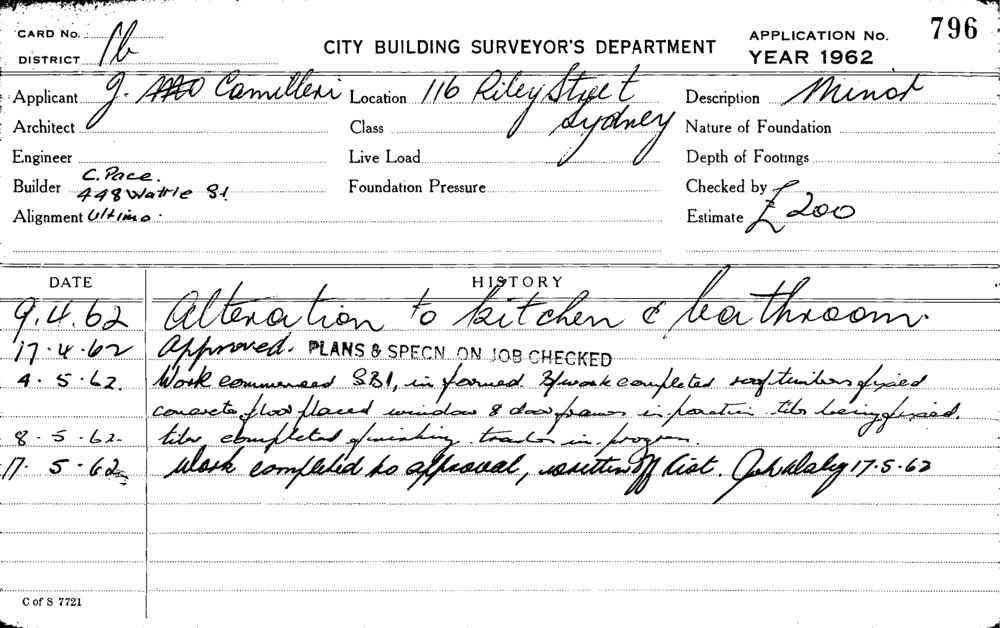 CARD No. 16
DISTRICT
CITY BUILDING SURVEYOR'S DEPARTMENT
APPLICATION No. 796
YEAR 1962
Applicant J. Camilleri
Location 116 Riley Street
Sydney
Description Minor
Architect
Class
Nature of Foundation
Engineer
Live Load
Depth of Footings
Builder C. Pace.
448 Wattle St.
Foundation Pressure
Checked by
Alignment Ultimo.
Estimate £200
DATE HISTORY
9.4.62 Alteration to kitchen & bathroom.
17.4.62 Approved. PLANS & SPECN ON JOB CHECKED
4.5.62. Work commenced SBI, informed. B/work completed roof timbers fixed
concrete floor placed window & door frames in position tiles being fixed.
8.5.62. tiles completed finishing trades in progress.
17.5.62 Work completed to approval, written off list. 17.5.62
C of S 7721